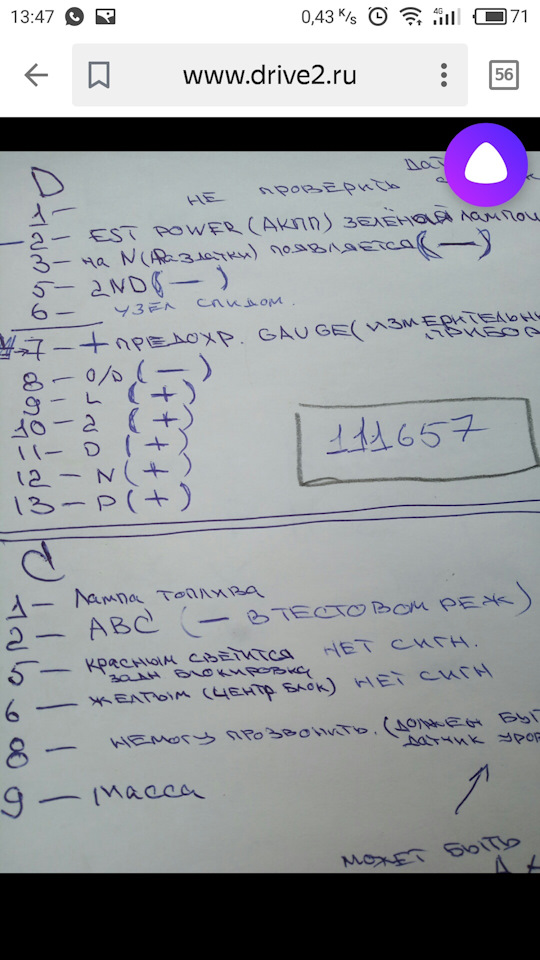 13:47
0,43 K/s
4G
71
www.drive2.ru
56
D
ДАТ
1 -
НЕ ПРОВЕРИТЬ
2 - EST POWER (АКПП) ЗЕЛЁНОЙ ЛАМПОЧ
3 - на N (РАЗДАТКИ) ПОЯВЛЯЕТСЯ (-)
5 - 2ND (-)
6 - УЗЕЛ СПИДОМ.
7 - + ПРЕДОХР. GAUGE (ИЗМЕРИТЕЛЬНЫ
ПРИБОР
8 - O/D (-)
9 - L (+)
10 - 2 (+)
11 - D (+)
12 - N (+)
13 - P (+)
111657
C
1 - Лампа ТОПЛИВА
2 - АВС (- В ТЕСТОВОМ РЕЖ)
5 - КРАСНЫМ СВЕТИТСЯ НЕТ СИГН.
ЗАДН БЛОКИРОВКА
6 - ЖЕЛТЫМ (ЦЕНТР БЛОК) НЕТ СИГН
8 - НЕМОГУ ПРОЗВОНИТЬ. (ДОЛЖЕН БЫТ
ДАТЧИК УРОВ
9 - Масса
МОЖЕТ БЫТЬ